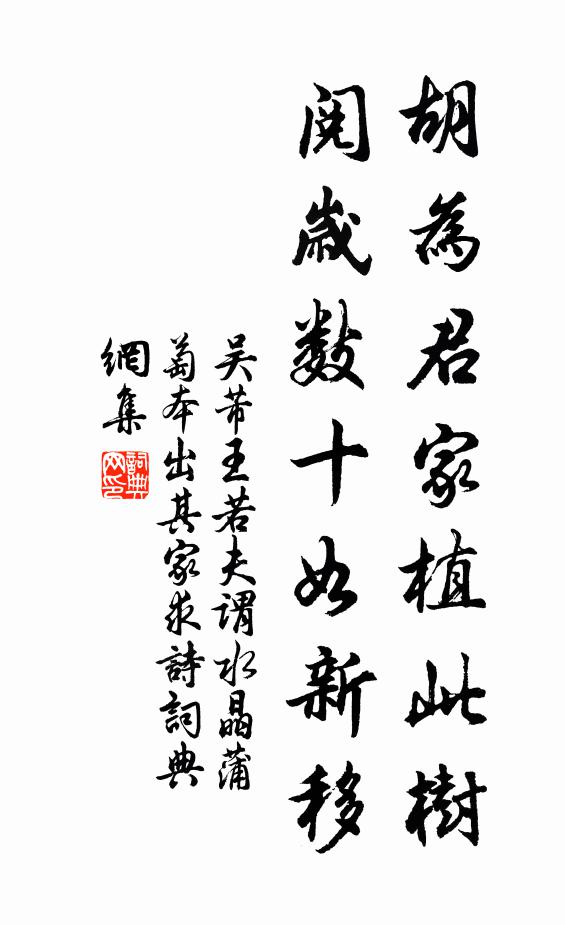 胡為君家植此樹
閱歲數十如新移
吴芾王若夫謂水晶蒲
萄本出其家求詩詞典
網集
詞典網印